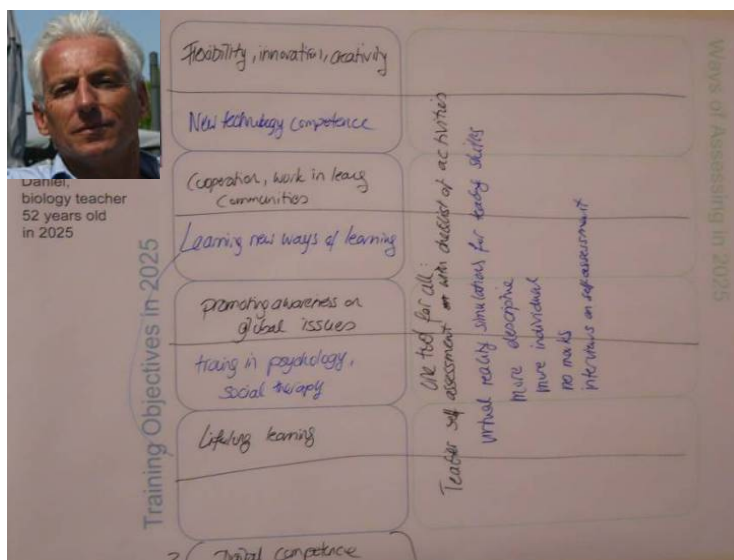 Daniel,
biology teacher
52 years old
in 2025
Training Objectives in 2025
Flexibility, innovation, creativity
New technology competence
Cooperation, work in learng
communities
Learning new ways of learning
promoting awareness on
global issues
traing in psychology,
social therapy
Lifelung learning
Digital competence
Ways of Assessing in 2025
One tool for all:
Teacher self assessment with checklist of activities
virtual reality simulations for teachg skills
more descriptive
more individual
no marks
interviews on self assessment